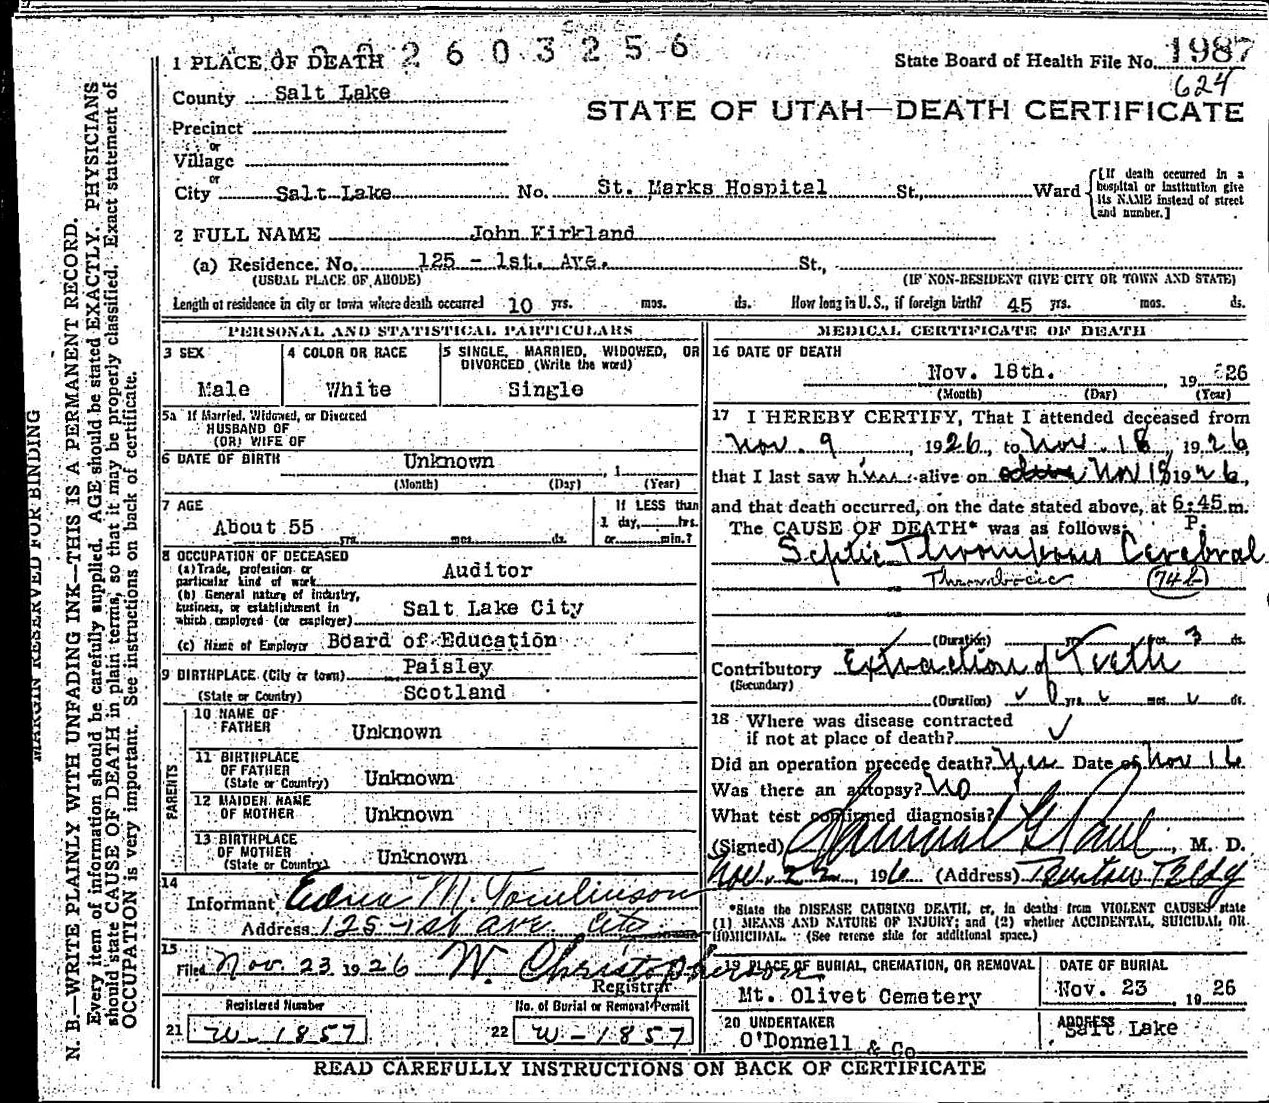 2603256
1 PLACE OF DEATH
State Board of Health File No. 1987
624
County Salt Lake
STATE OF UTAH—DEATH CERTIFICATE
Precinct
or
Village
or
City Salt Lake No. St. Marks Hospital St., Ward
[If death occurred in a
hospital or institution give
its NAME instead of street
and number.]
2 FULL NAME John Kirkland
(a) Residence. No. 125 - 1st. Ave. St.,
(USUAL PLACE OF ABODE) (IF NON-RESIDENT GIVE CITY OR TOWN AND STATE)
Length of residence in city or town where death occurred 10 yrs. mos. ds. How long in U.S., if foreign birth? 45 yrs. mos. ds.
PERSONAL AND STATISTICAL PARTICULARS
3 SEX
Male
4 COLOR OR RACE
White
5 SINGLE, MARRIED, WIDOWED, OR
DIVORCED (Write the word)
Single
5a If Married, Widowed, or Divorced
HUSBAND OF
(OR) WIFE OF
6 DATE OF BIRTH Unknown , 1
(Month) (Day) (Year)
7 AGE
About 55
yrs. mos. ds.
If LESS than
1 day, hrs.
or min.?
8 OCCUPATION OF DECEASED
(a) Trade, profession or
particular kind of work Auditor
(b) General nature of industry,
business, or establishment in
which employed (or employer) Salt Lake City
(c) Name of Employer Board of Education
9 BIRTHPLACE (City or town) Paisley
(State or Country) Scotland
PARENTS
10 NAME OF
FATHER Unknown
11 BIRTHPLACE
OF FATHER
(State or Country) Unknown
12 MAIDEN NAME
OF MOTHER Unknown
13 BIRTHPLACE
OF MOTHER
(State or Country) Unknown
14
Informant Edna M. Tomlinson
Address 125-1st ave. City
15
Filed Nov. 23 1926 W. Christopherson
Registrar
Registered Number
21 W-1857
No. of Burial or Removal Permit
22 W-1857
MEDICAL CERTIFICATE OF DEATH
16 DATE OF DEATH
Nov. 18th. , 19 26
(Month) (Day) (Year)
17 I HEREBY CERTIFY, That I attended deceased from
Nov. 9, 1926, to Nov. 18, 1926,
that I last saw him alive on Nov 18 1926,
and that death occurred, on the date stated above, at 6:45 m.
P.
The CAUSE OF DEATH* was as follows:
Septic Thrombous Cerebral
(74b)
(Duration) yrs. mos. 3 ds.
Contributory Extraction of Teeth
(Secondary)
(Duration) yrs. mos. ds.
18 Where was disease contracted
if not at place of death?
Did an operation precede death? Yes Date of Nov 16
Was there an autopsy? No
What test confirmed diagnosis?
(Signed) Samuel G Paul, M. D.
Nov. 22, 1926 (Address)
*State the DISEASE CAUSING DEATH, or, in deaths from VIOLENT CAUSES, state
(1) MEANS AND NATURE OF INJURY; and (2) whether ACCIDENTAL, SUICIDAL, OR
HOMICIDAL. (See reverse side for additional space.)
19 PLACE OF BURIAL, CREMATION, OR REMOVAL
Mt. Olivet Cemetery
DATE OF BURIAL
Nov. 23 , 19 26
20 UNDERTAKER
O'Donnell & Co
ADDRESS
Salt Lake
READ CAREFULLY INSTRUCTIONS ON BACK OF CERTIFICATE
MARGIN RESERVED FOR BINDING
N. B.—WRITE PLAINLY WITH UNFADING INK—THIS IS A PERMANENT RECORD.
Every item of information should be carefully supplied. AGE should be stated EXACTLY. PHYSICIANS
should state CAUSE OF DEATH in plain terms, so that it may be properly classified. Exact statement of
OCCUPATION is very important. See instructions on back of certificate.